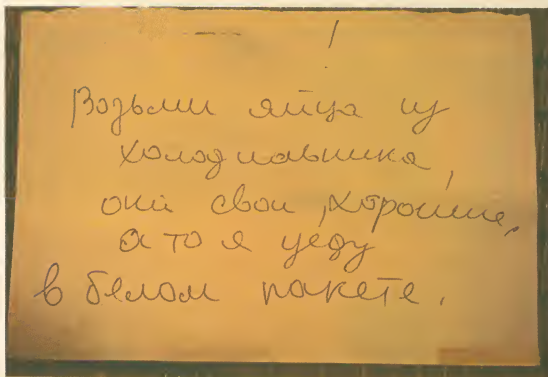 !
Возьми яйца из
холодильника,
они свои, хорошие,
а то я уеду
в белом пакете.